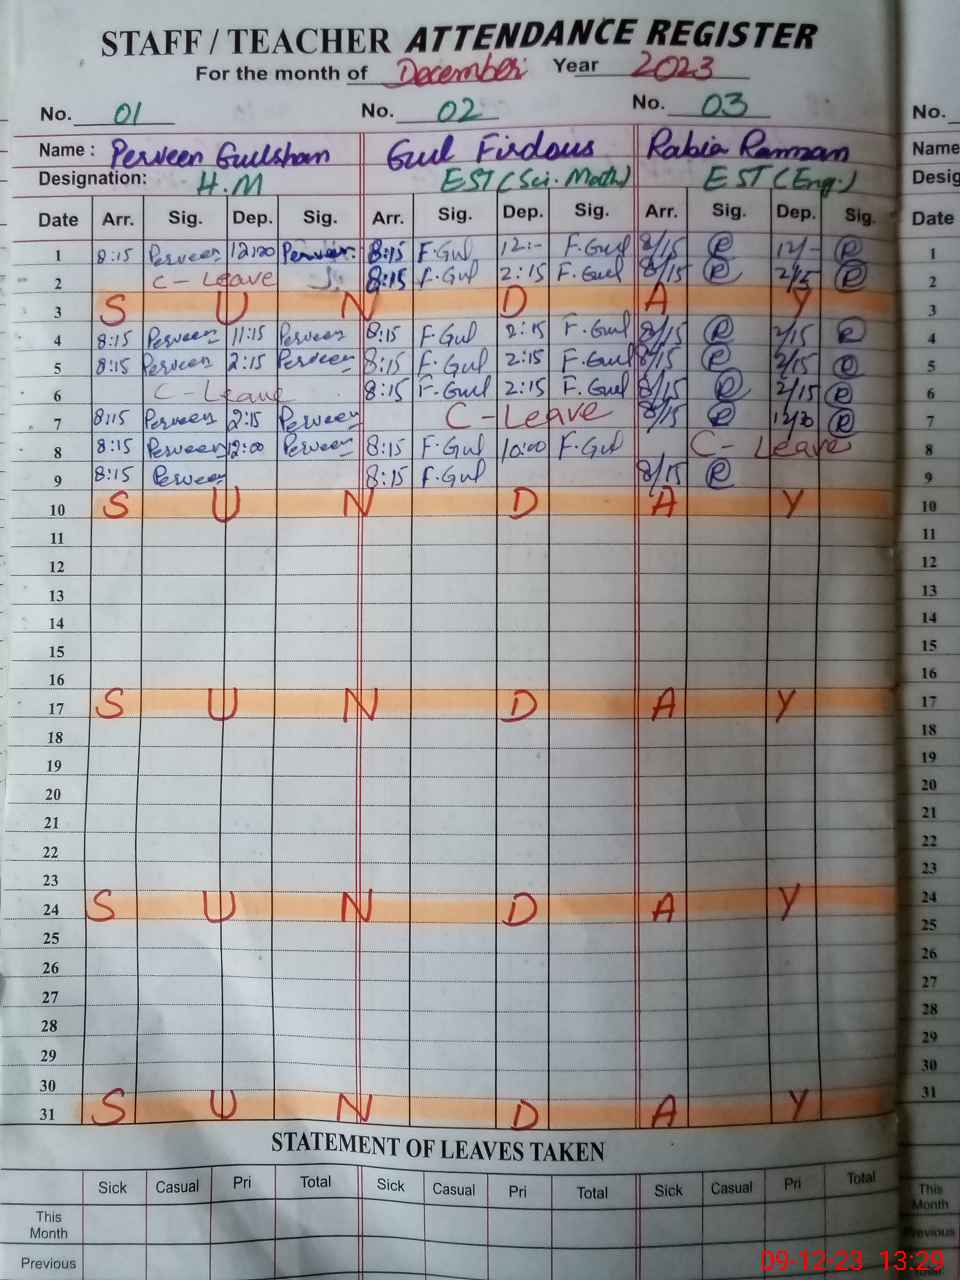 STAFF / TEACHER ATTENDANCE REGISTER
For the month of December Year 2023
No. 01 No. 02 No. 03 No.
Name : Perveen Gulshan Gul Firdous Rabia Ramzan Name
Designation: H.M EST (Sci. Math) EST (Eng.) Desig
Date Arr. Sig. Dep. Sig. Arr. Sig. Dep. Sig. Arr. Sig. Dep. Sig. Date
1 8:15 Perveen 12:00 Perveen 8:15 F.Gul 12:- F.Gul 8/15 R 12/- R 1
2 C - Leave 8:15 F.Gul 2:15 F.Gul 8/15 R 2/15 R 2
3 S U N D A Y 3
4 8:15 Perveen 11:15 Perveen 8:15 F.Gul 2:15 F.Gul 8/15 R 2/15 R 4
5 8:15 Perveen 2:15 Perveen 8:15 F.Gul 2:15 F.Gul 8/15 R 2/15 R 5
6 C - Leave 8:15 F.Gul 2:15 F.Gul 8/15 R 2/15 R 6
7 8:15 Perveen 2:15 Perveen C - Leave 8/15 R R 7
8 8:15 Perveen 12:00 Perveen 8:15 F.Gul 10:00 F.Gul C - Leave 8
9 8:15 Perveen 8:15 F.Gul 8/15 R 9
10 S U N D A Y 10
11 11
12 12
13 13
14 14
15 15
16 16
17 S U N D A Y 17
18 18
19 19
20 20
21 21
22 22
23 23
24 S U N D A Y 24
25 25
26 26
27 27
28 28
29 29
30 30
31 S U N D A Y 31
STATEMENT OF LEAVES TAKEN
Sick Casual Pri Total Sick Casual Pri Total Sick Casual Pri Total
This Month This Month
Previous Previous
09-12-23 13:29